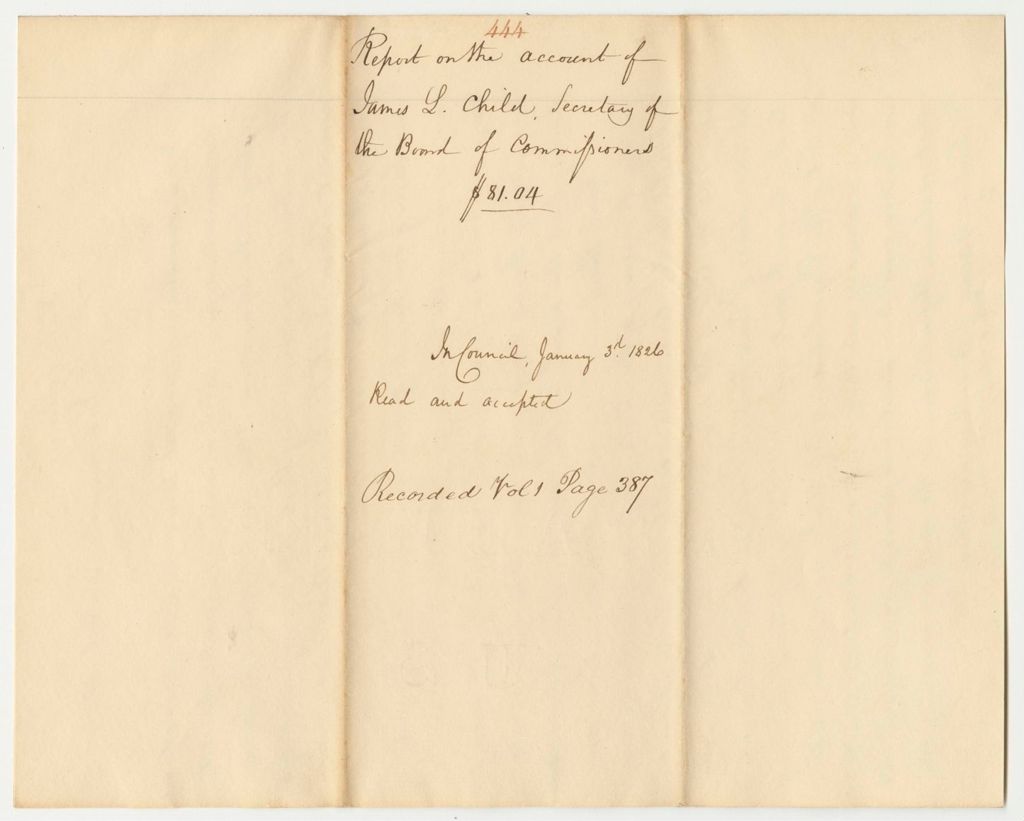 444
Report on the account of
James L. Child, Secretary of
the Board of Commissioners
$81.04
In Council, January 3d. 1826
Read and accepted
Recorded Vol 1 Page 387